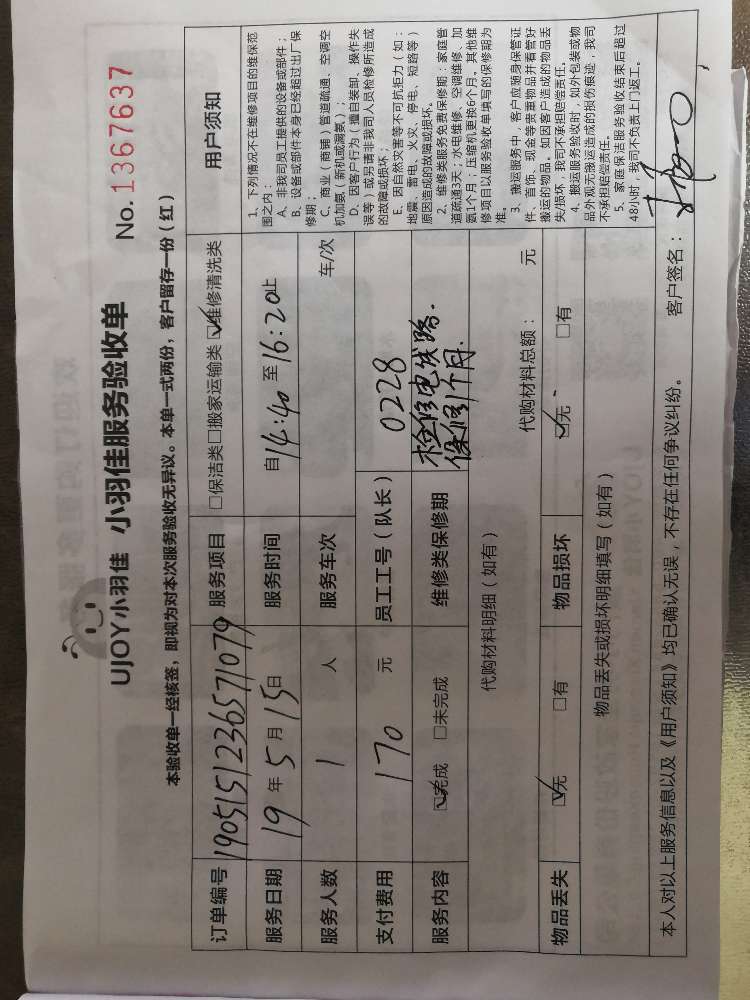 UJOY小羽佳 小羽佳服务验收单 No.1367637
本验收单一经核签，即视为对本次服务验收无异议。本单一式两份，客户留存一份（红）
订单编号 190515123657107​9 服务项目 □保洁类□搬家运输类☑维修清洗类
服务日期 19年5月15日 服务时间 自14:40至16:20止
服务人数 1 人 服务车次 车/次
支付费用 170 元 员工工号（队长） 0228
服务内容 ☑完成 □未完成 维修类保修期 检修电线路.
保修1个月.
代购材料明细（如有） 代购材料总额： 元
物品丢失 ☑无 □有 物品损坏 ☑无 □有
物品丢失或损坏明细填写（如有）
本人对以上服务信息以及《用户须知》均已确认无误，不存在任何争议纠纷。 客户签名：
用户须知
1、下列情况不在维修项目的维保范
围之内：
A、非我司员工提供的设备或部件；
B、设备或部件本身已经超过出厂保
修期；
C、商业（商铺）管道疏通、空调空
机加氨（新机或漏氨）；
D、因客户行为（擅自装卸、操作失
误等）或另请非我司人员检修所造成
的故障或损坏；
E、因自然灾害等不可抗拒力（如：
地震、雷电、火灾、停电、短路等）
原因造成的故障或损坏。
2、维修类服务免费保修期：家庭管
道疏通3天；水电维修、空调维修、加
氨1个月；压缩机更换6个月。其他维
修项目以服务验收单填写的保修期为
准。
3、搬运服务中，客户应随身保管证
件、首饰、现金等贵重物品并看管好
搬运的物品，如因客户造成的物品丢
失/损坏，我司不承担赔偿责任。
4、搬运服务验收时，如外包装或物
品外观无搬运造成的损伤痕迹，我司
不承担赔偿责任。
5、家庭保洁服务验收结束后超过
48小时，我司不负责上门返工。